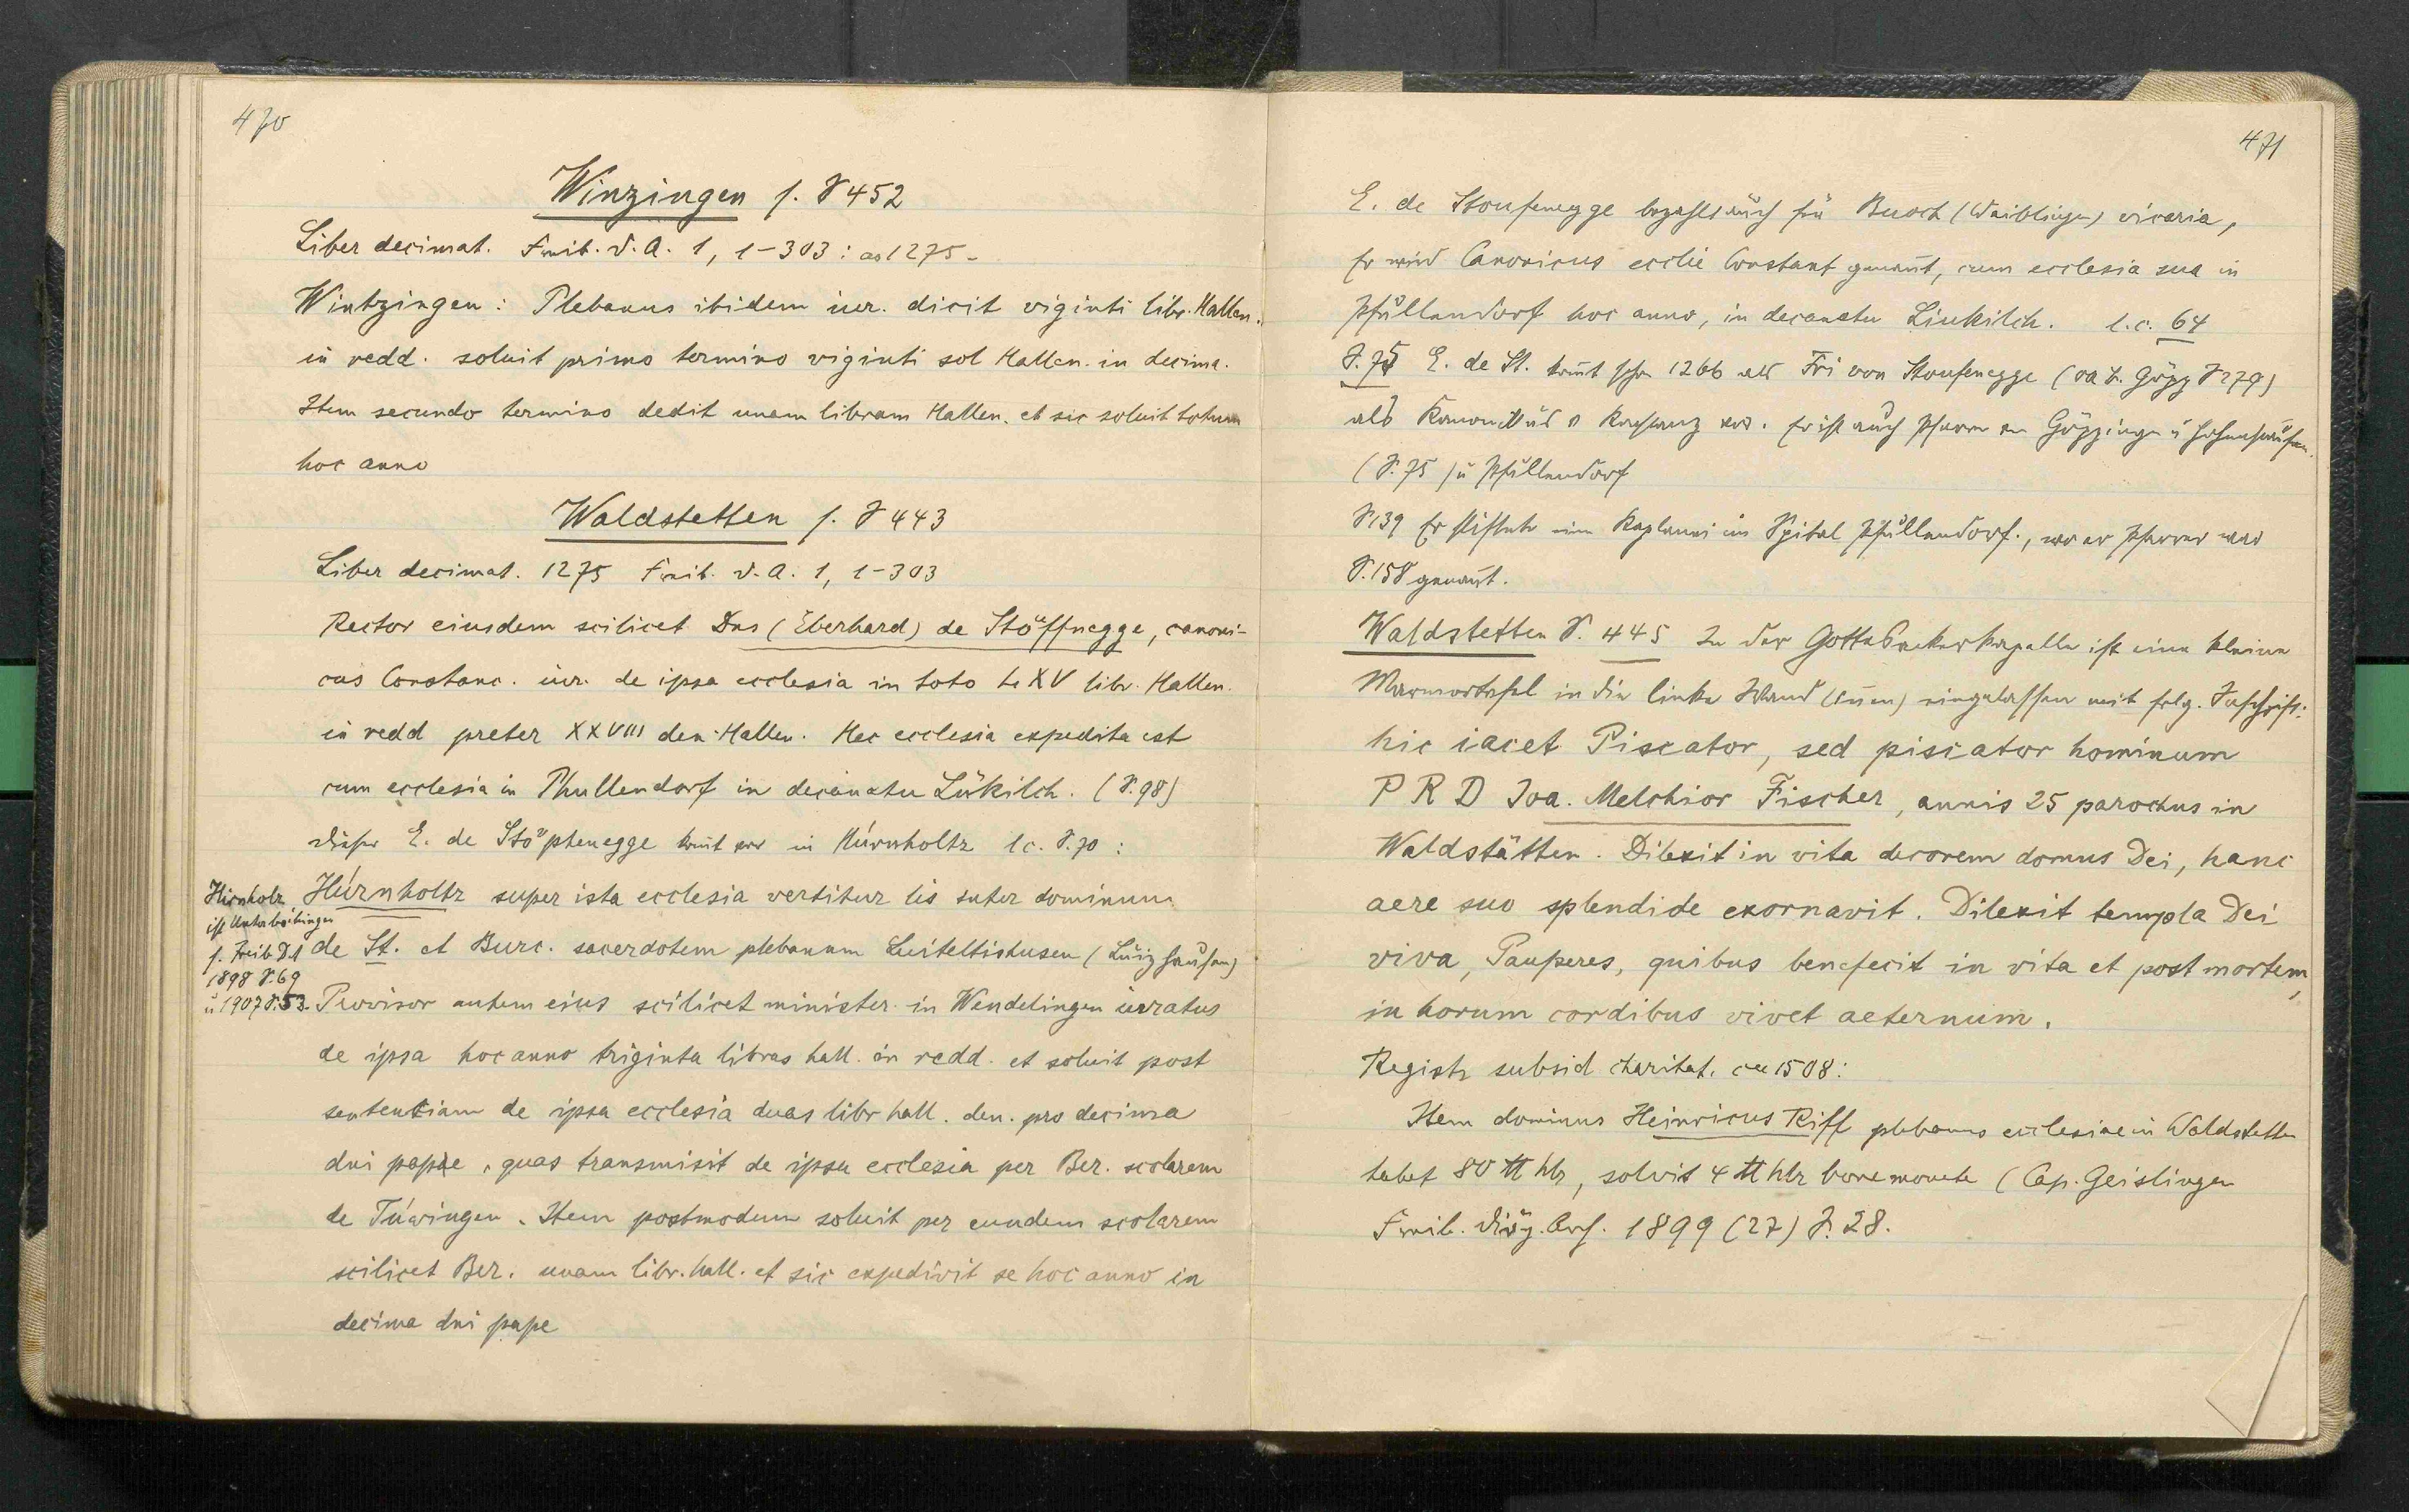 470
Winzingen s. S 452
Liber decimat. Freib. D. A. 1, 1-303: ao 1275.
Wintzingen: Plebanus ibidem iur. dicit viginti libr. Hallen.
in redd. soluit primo termino viginti sol Hallen. in decima.
Item secundo termino dedit unam libram Hallen. et sic soluit totum
hoc anno
Waldstetten s. S 443
Liber decimat. 1275 Freib. D. A. 1, 1-303
Rector eiusdem scilicet Dns (Eberhard) de Stöffnegge, canoni-
cus Constanc. iur. de ipsa ecclesia in toto LXV libr. Hallen.
in redd preter XXVIII den Hallen. Hec ecclesia expedita est
cum ecclesia in Phullendorf in decanatu Lükilch. (S. 98)
Dieser E. de Stöphenegge komt vor in Húrnholtz l c. S. 70:
Hirnholz
ist Unterböbingen
s. Freib D A
1898 S 69
u 1907 S. 53.
Húrnholtz super ista ecclesia vertitur lis inter dominum
de St. et Burc. sacerdotem plebanum Luiteltishusen (Luizhausen)
Provisor autem eius scilicet minister in Wendelingen iuratus
de ipsa hoc anno triginta libras hall. in redd. et soluit post
sententiam de ipsa ecclesia duas libr hall. den. pro decima
dni pape, quas transmisit de ipsa ecclesia per Ber. scolarem
de Túwingen. Item postmodum soluit per eundem scolarem
scilicet Ber. unam libr. hall. et sic expedivit se hoc anno in
decima dni pape
471
E. de Stoufenegge bezahlt auch für Buoch (Waiblingen) vicaria,
Er wird Canonicus ecclie Constant genannt, cum ecclesia sua in
Pfullendorf hoc anno, in decanatu Liukilch. l. c. 64
S. 75 E. de St. komt schon 1266 als Fri von Stoufenegge (OA B. Göpp S 279)
als Kanonikus v Konstanz vor. Er ist auch Pfarrer von Göppingen u Hohenstaufen.
(S. 75) u Pfullendorf
S 139 Er stiftete eine Kaplanei im Spital Pfullendorf., wo er Pfarrer war
S. 158 genannt.
Waldstetten S. 445 In der Gottesackerkapelle ist eine kleine
Marmortafel in die linke Wand (innen) eingelassen mit folg. Inschrift:
hic iacet Piscator, sed piscator hominum
P R D Joa. Melchior Fischer, annis 25 parochus in
Waldstätten. Dilexit in vita decorem domus Dei, hanc
aere suo splendide exornavit. Dilexit templa Dei
viva, Pauperes, quibus benefecit in vita et post mortem,
in horum cordibus vivet aeternum.
Registr subsid charitat. ca 1508:
Item dominus Heinricus Riff plebanus ecclesiae in Waldstetten
habet 80 ℔ hlr, solvit 4 ℔ hlr bone monete (Cap. Geislingen
Freib. Diöz. Arch. 1899 (27) S. 28.